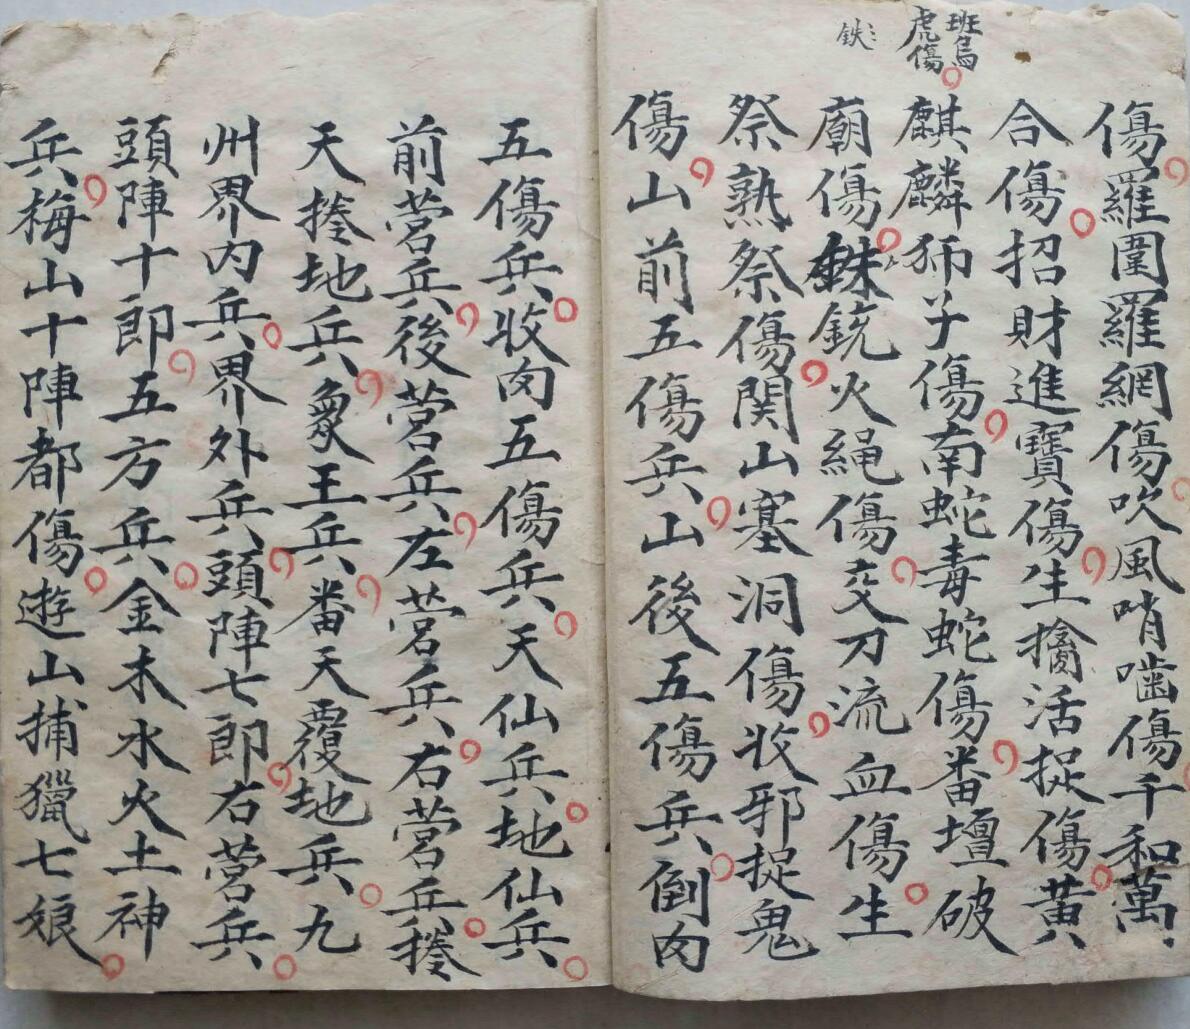 班鳥
虎傷
鉄
傷羅圍羅網傷吹風哨噛傷千和萬
合傷招財進寶傷生擒活捉傷黃
麒麟狮子傷南蛇毒蛇傷番壇破
廟傷銃火繩傷交刀流血傷生
祭熟祭傷関山塞洞傷收邪捉鬼
傷山前五傷兵山後五傷兵倒肉
五傷兵收肉五傷兵天仙兵地仙兵
前营兵後营兵左营兵右营兵捲
天捲地兵象王兵番天覆地兵九
州界内兵界外兵頭陣七郎右营兵
頭陣十郎五方兵金木水火土神
兵梅山十陣都傷遊山捕獵七娘